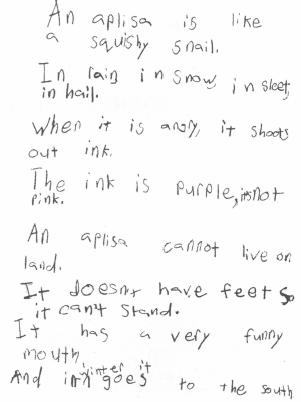 An aplisa is like
a squishy snail.
In rain in snow, in sleet,
in hail.
When it is angry, it shoots
out ink.
The ink is purple, its not
pink.
An aplisa cannot live on
land.
It doesn't have feet so
it can't stand.
It has a very funny
mouth.
And in winter it goes to the south